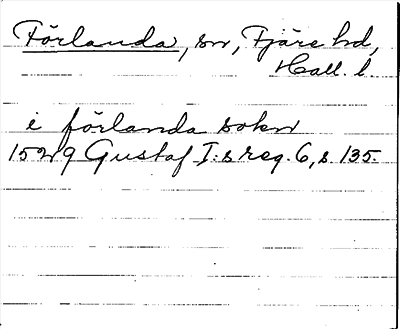 Förlanda, sn, Fjäre hd,
Hall. l.
i förlanda sokn
1529 Gustaf I:s reg. 6, s. 135.